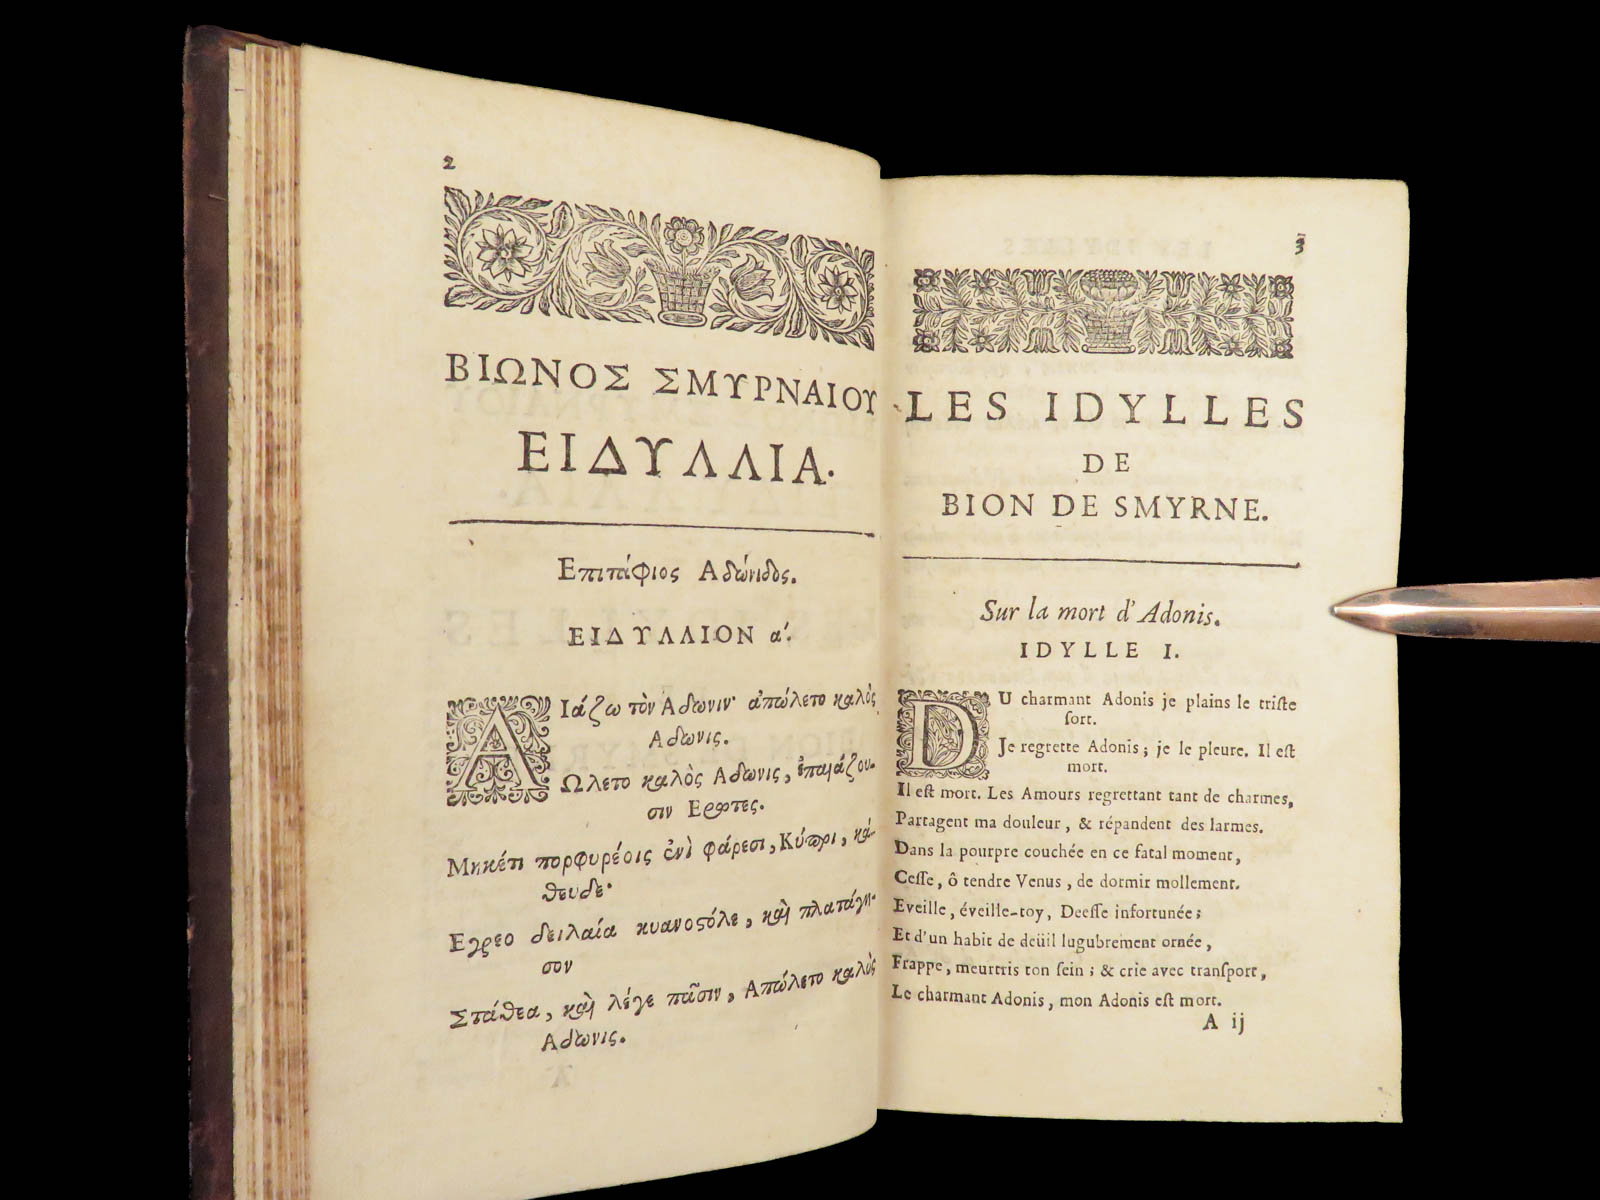 2
ΒΙΩΝΟΣ ΣΜΥΡΝΑΙΟΥ
ΕΙΔΥΛΛΙΑ.
Επιτάφιος Αδώνιδος.
ΕΙΔΥΛΛΙΟΝ α΄.
ΑΙάζω τὸν Αδωνιν· ἀπώλετο καλὸς
Αδωνις.
Ωλετο καλὸς Αδωνις, ἐπαιάζου-
σιν Ερωτες.
Μηκέτι πορφυρέοις ἐνὶ φάρεσι, Κύπρι, κά-
θευδε·
Εγρεο δειλαία κυανοστόλε, καὶ πλατάγη-
σον
Στάθεα, καὶ λέγε πᾶσιν, Απώλετο καλὸς
Αδωνις.
3
LES IDYLLES
DE
BION DE SMYRNE.
Sur la mort d'Adonis.
IDYLLE I.
DU charmant Adonis je plains le triste
ſort.
Je regrette Adonis; je le pleure. Il est
mort.
Il est mort. Les Amours regrettant tant de charmes,
Partagent ma douleur, & répandent des larmes.
Dans la pourpre couchée en ce fatal moment,
Ceſſe, ô tendre Venus, de dormir mollement.
Eveille, éveille-toy, Deeſſe infortunée;
Et d'un habit de deüil lugubrement ornée,
Frappe, meurtris ton ſein; & crie avec tranſport,
Le charmant Adonis, mon Adonis est mort.
A ij